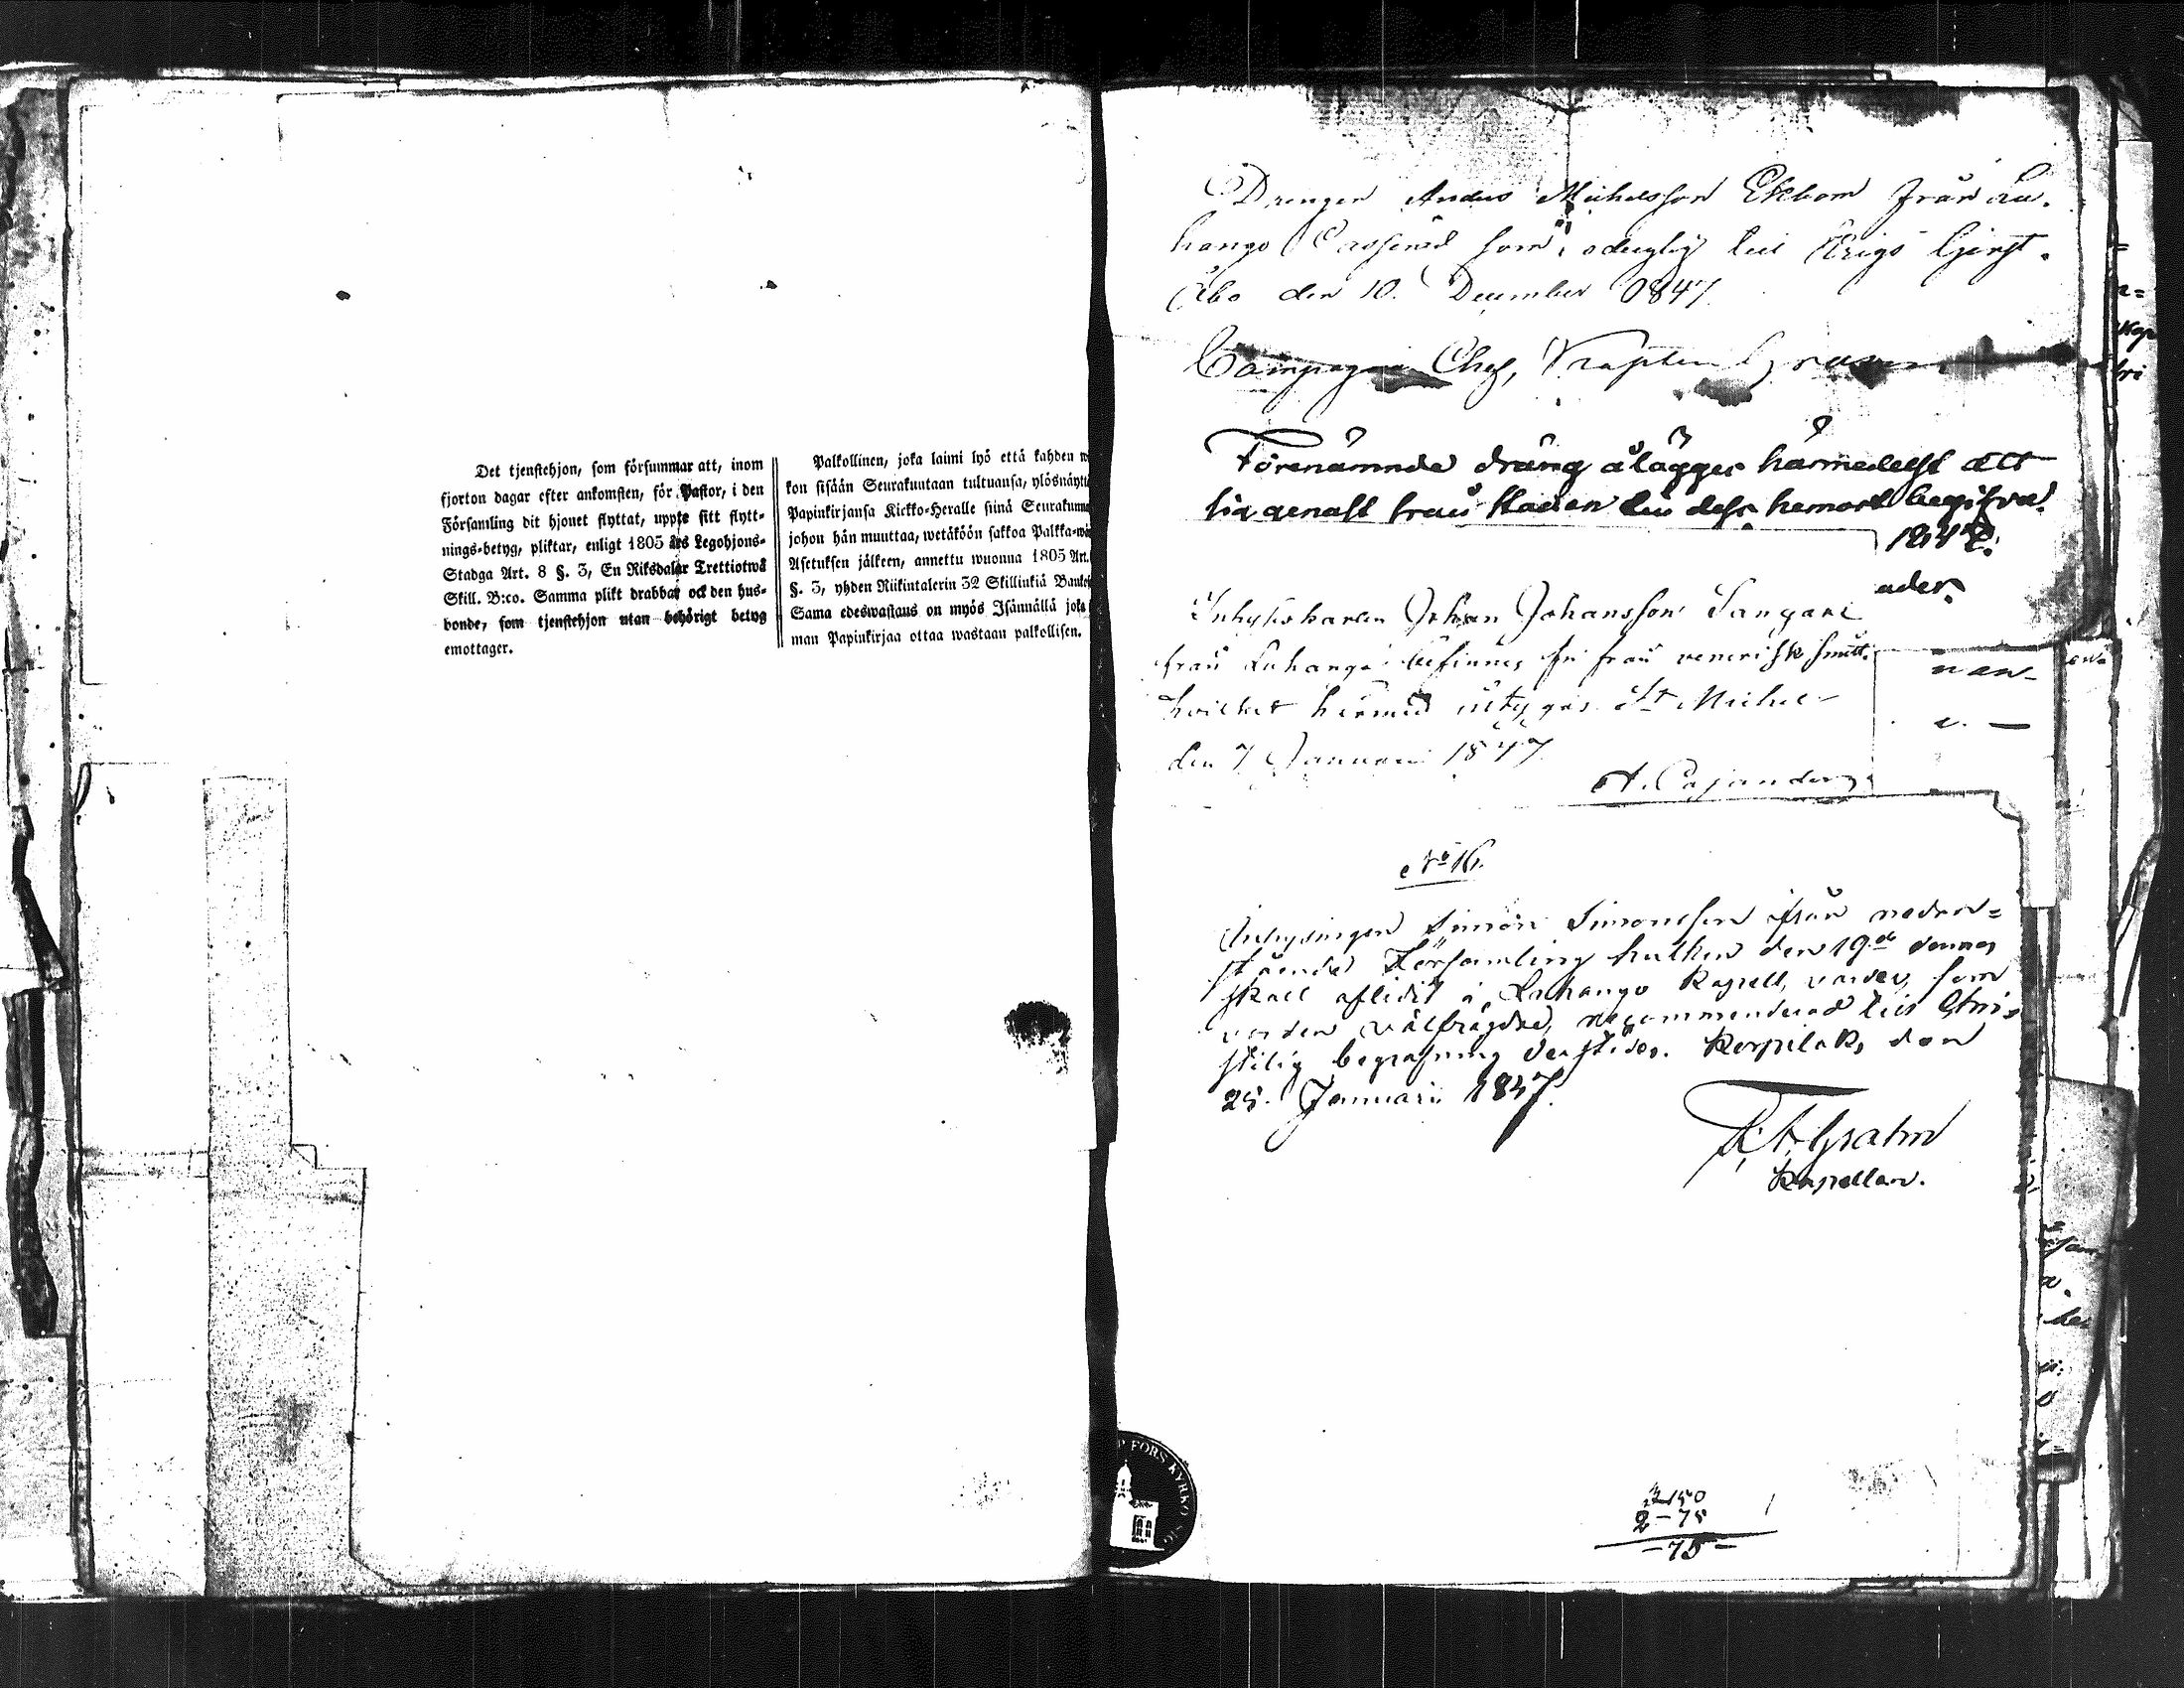 Det tjenstehjon, som försummar att, inom
fjorton dagar efter ankomsten, för Pastor, i den
Församling dit hjonet flyttat, uppte sitt flytt-
nings-betyg, pliktar, enligt 1805 års Legohjons-
Stadga Art. 8 §. 3, En Riksdaler Trettiotwå
Skill. B:co. Samma plikt drabbar ock den hus-
bonde, som tjenstehjon utan behörigt betyg
emottager.
Palkollinen, joka laimi lyö että kahden
kon sisään Seurakuntaan tultuansa, ylösnäytt
Papinkirjansa Kirkko-Herralle siinä Seurakunna
johon hän muuttaa, wetäköön sakkoa Palkka-wä
Asetuksen jälkeen, annettu wuonna 1805 Art.
§. 3, yhden Riikintalerin 32 Skillinkiä Banko
Sama edeswastaus on myös Isännällä joka
man Papinkirjaa ottaa wastaan palkollisen.
Drengen Anders Michelsson Ekbom från Lu-
hango Casserad som oduglig till Krigs tjenst.
Åbo den 10. December 1847.
Compagnie Chef, Kapten
Förenämnde dräng ålägges härmedelst att
sig genast från staden till dess hemort begifva.
1847.
Inhyseskarlen Johan Johansson Tangari
från Luhango befinnes fri från venerisk smitta
hvilket härmed intygas St Michel
den 7 Januari 1847.
A. Cajander
No 16.
Inhysingen Simon Simonsson från nedan-
stående Församling hvilken den 19de dennes
skall aflidit i Luhango Kapell, varder, som
varden välfrägdad, recommenderad till Chri-
stelig begrafning derstädes. Korpilaks den
25. Januari 1847.
Kapellan.
2-75
-75-